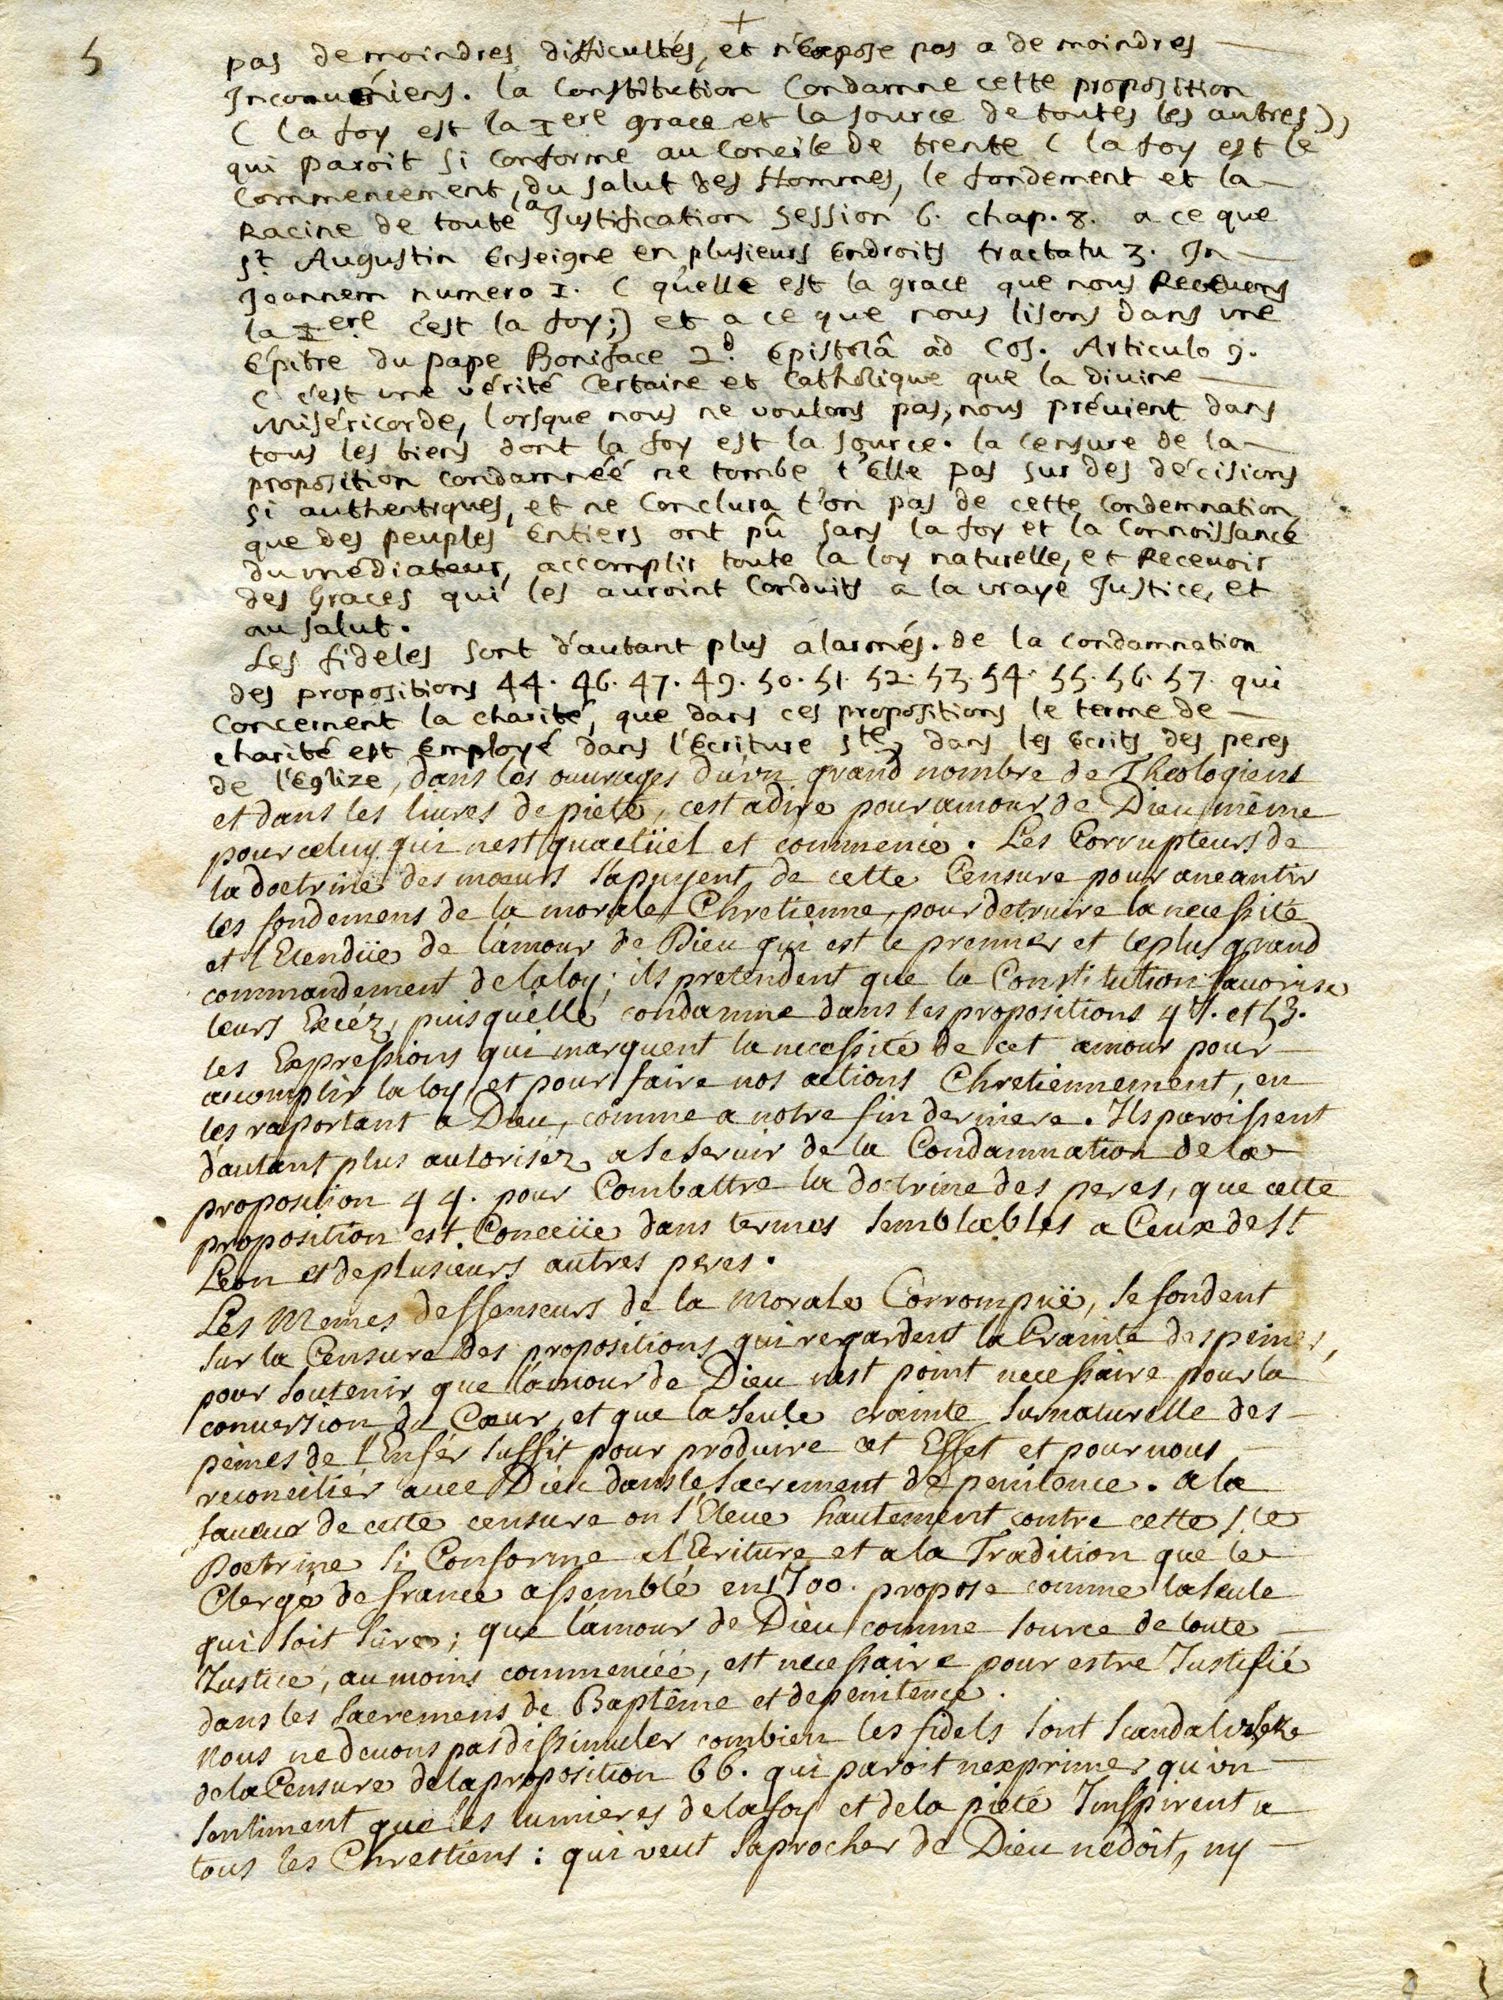 +
5
pas de moindres difficultés, et n'Expose pas a de moindres
Inconuéniens. la Constitution Condamne cette proposition
( la foy est la Iere grace et la source de toutes les autres))
qui paroit si Conforme au Concile de trente ( la foy est le
Commencement, du salut des Hommes, le fondement et la
Racine de toute Justification Session 6. chap. 8. a ce que
St. Augustin Enseigne en plusieurs Endroits tractatu 3. In
Joannem numero I. ( quelle est la grace que nous Recevons
la Iere c'est la foy;) et a ce que nous lisons dans une
Epitre du pape Boniface 2d. Epistolâ ad Cos. Articulo 9.
( c'est une vérité Certaine et Catholique que la divine
Miséricorde, lorsque nous ne voulons pas, nous prévient dans
tous les biens dont la foy est la source. la censure de la
proposition condamnéé ne tombe t'Elle pas sur des décisions
si authentiques, et ne Conclura t'on pas de cette condemnation
que des peuples Entiers ont pû sans la foy et la Connoissance
du médiateur, accomplir toute la loy naturelle, et Recevoir
des Graces qui les auroint Conduits a la vraye Justice, et
au salut.
Les fideles sont d'autant plus alarmés. de la condamnation
des propositions 44. 46. 47. 49. 50. 51. 52. 53. 54. 55. 56. 57. qui
Concernent la charité, que dans ces propositions le terme de
charité est Employé dans l'Ecriture Ste, dans les Ecrits des peres
de l'Eglize, dans les ouvrages d'un grand nombre de Theologiens
et dans les livres de pieté, cest adire pour amour de Dieu, même
pour celuy qui nest qu'actüel et commencé. Les Corrupteurs de
la doctrine des mœurs sapuyent de cette Censure pour aneantir
les fondemens de la morale Chretienne, pour detruire la necessité
et l'Etendüe de lamour de Dieu qui est le premier et le plus grand
commandement de la loy; ils pretendent que la Constitution favorise
leurs Excéz, puis quelle condamne dans les propositions 47. et 53.
les Expressions qui marquent la necessité de cet amour pour
accomplir la loy, et pour faire nos actions Chretiennement, en
les raportant a Dieu, comme a notre fin derniere. Ils paroissent
dautant plus autorisez, a se servir de la Condamnation de la
proposition 44. pour Combattre la doctrine des peres, que cette
proposition est Conceüe dans termes semblables a Ceux de St
Leon et de plusieurs autres peres.
Les Memes deffenseurs de la Morale Corrompuë, se fondent
sur la Censure des propositions qui regardent la Crainte des peines,
pour soutenir que lamour de Dieu nest point necessaire pour la
conversion du Cœur, et que la seule crainte surnaturelle des
peines de l'Enfér suffit pour produire cet Effet et pour nous
reconcilier avec Dieu dans le sacrement de penitence. a la
faveur de cette censure on s'Eleve hautement contre cette ste
Doctrine si Conforme a l'Ecriture et a la Tradition que le
Clergé de france assemblé en 1700. propose comme la seule
qui soit sûre; que lamour de Dieu comme source de toute
Justice, au moins commencéé, est necessaire pour estre Justifié
dans les sacremens de Baptême et de penitence.
Nous ne devons pas dissimuler combien les fidels sont
de la Censure de la proposition 66. qui paroit nexprimer qu'un
sentiment que les lumieres de la foy et de la piété Jnspirent a
tous les Chrestiens : qui veut saprocher de Dieu ne doit, ny